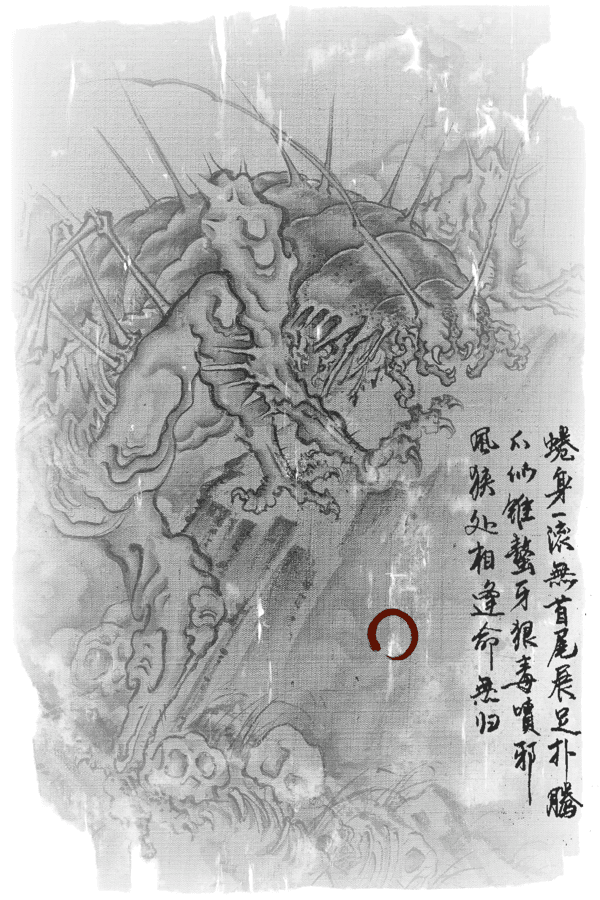 蜷身一滚無首尾展足扑騰
爪似錐螯牙狠毒噴邪
風狭处相逢命無归